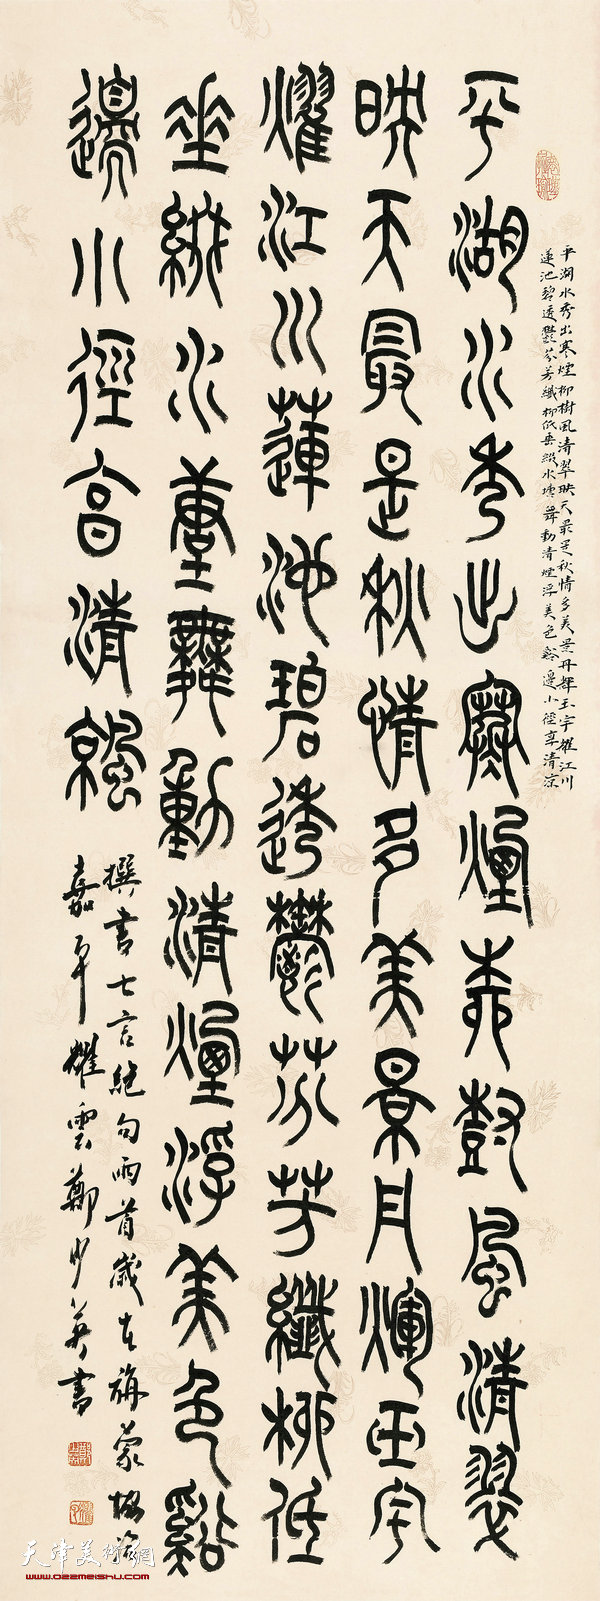 平湖水秀出寒煙柳樹風清翠映天最是秋情多美景丹輝玉宇耀江川
蓮池碧透鬱芬芳纖柳低垂綴水塘舞動清煙浮美色谿邊小徑享清涼
平湖水秀出寒煙柳樹風清翠
映天最是秋情多美景丹輝玉宇
耀江川蓮池碧透鬱芬芳纖柳低
垂綴水塘舞動清煙浮美色谿
邊小徑享清涼
撰書七言絕句兩首歲在旃蒙協洽
嘉平耀雲鄭少英書
天津美術網
www.022meishu.com